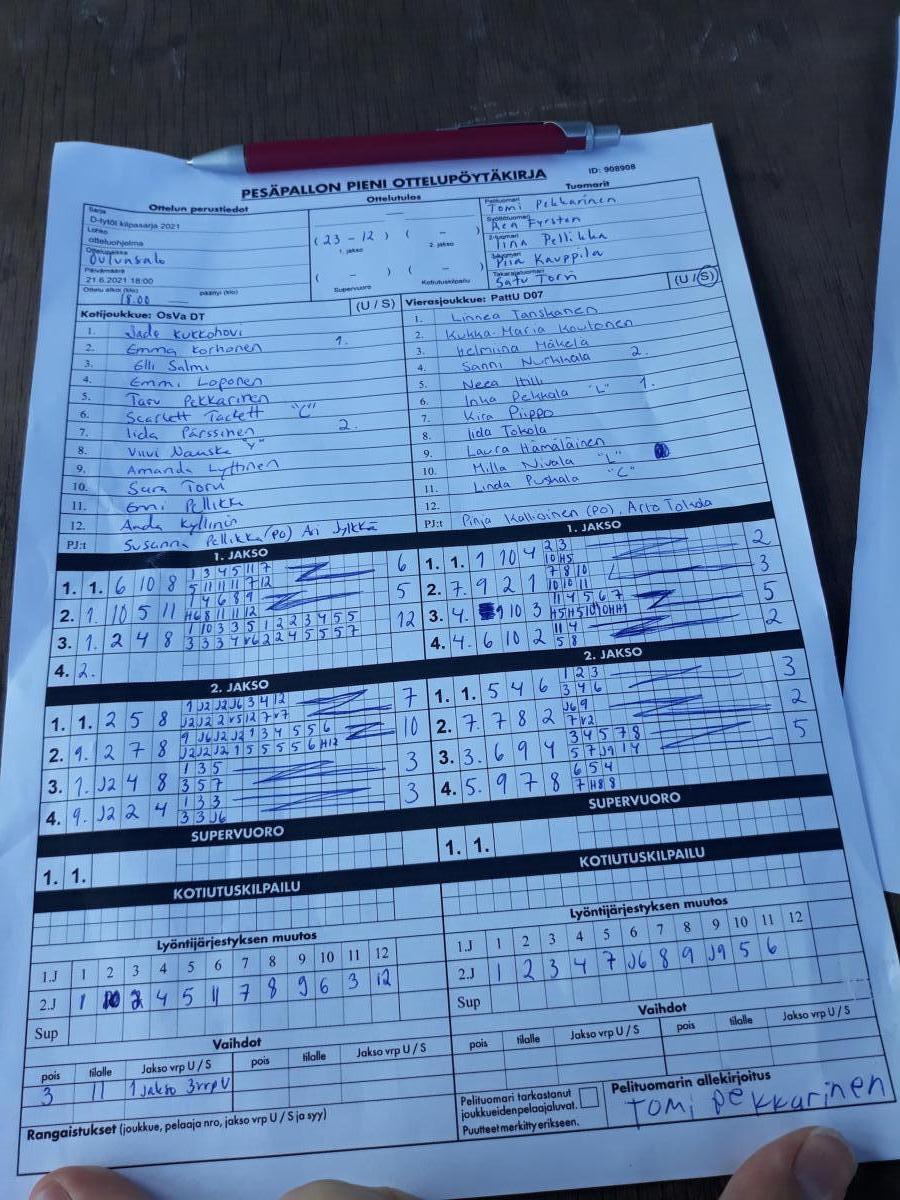 PESÄPALLON PIENI OTTELUPÖYTÄKIRJA
ID: 908908
Ottelun perustiedot
Sarja
D-tytöt kilpasarja 2021
Lohko
otteluohjelma
Ottelupaikka
Oulunsalo
Päivämäärä
21.6.2021 18:00
Ottelu alkoi (klo) 18.00 päättyi (klo)
Ottelutulos
( 23 - 12 ) ( - )
1. jakso 2. jakso
( - ) ( - )
Supervuoro Kotiutuskilpailu
Tuomarit
Pelituomari
Tomi Pekkarinen
Syöttötuomari
Aen Fyrsten
2-tuomari
Iina Pellikka
3-tuomari
Piia Kauppila
Takarajatuomari
Satu Torvi
Kotijoukkue: OsVa DT (U / S)
1. Jade Kukkohovi
2. Emma Korhonen 1.
3. Elli Salmi
4. Emmi Loponen
5. Taru Pekkarinen
6. Scarlett Tackett "C"
7. Iida Pärssinen 2.
8. Viivi Nauska "Y"
9. Amanda Lyttinen
10. Sara Torvi
11. Enni Pellikka
12. Anda Kyllinin
PJ:t Susanna Pellikka (PO) Ari Jylkkä
Vierasjoukkue: PattU D07 (U / S)
1. Linnea Tanskanen
2. Kukka-Maria Koutonen
3. Helmiina Mäkelä
4. Sanni Nurkkala 2.
5. Neea Hilli
6. Inka Pekkala "L" 1.
7. Kira Piippo
8. Iida Tokola
9. Laura Hämäläinen
10. Milla Nivala "L"
11. Linda Puskala "C"
12.
PJ:t Pinja Kallioinen (PO), Arto Tokola
1. JAKSO
1. 1. 6 10 8 1 3 4 5 11 7 6
5 11 11 11 7 12
2. 1. 10 5 11 1 4 6 8 9 5
H6 8 11 11 12
3. 1. 2 4 8 1 10 3 3 5 1 2 2 3 4 5 5 12
3 3 3 4 V6 2 2 4 5 5 5 7
4. 2.
1. JAKSO
1. 1. 1 10 4 2 3 2
10 H5
2. 7. 9 2 1 7 8 10 3
10 10 11
3. 4. 9 10 3 11 4 5 6 7 5
H5 H5 10 10 H H1
4. 4. 6 10 2 11 4 2
5 8
2. JAKSO
1. 1. 2 5 8 1 J2 J2 J6 3 4 12 7
J2 J2 2 V5 12 7 V7
2. 9. 2 7 8 9 J6 J2 J2 1 3 4 5 5 6 10
J2 J2 J2 1 5 5 5 5 6 H12
3. 1. J2 4 8 1 3 5 3
3 5 7
4. 9. J2 2 4 1 3 3 3
3 3 J6
2. JAKSO
1. 1. 5 4 6 1 2 3 3
3 4 6
2. 7. 7 8 2 J6 9 2
7 V2
3. 3. 6 9 4 3 4 5 7 8 5
5 7 J9 1 4
4. 5. 9 7 8 6 5 4
7 H8 8
SUPERVUORO
1. 1.
SUPERVUORO
1. 1.
KOTIUTUSKILPAILU
KOTIUTUSKILPAILU
Lyöntijärjestyksen muutos
1.J 1 2 3 4 5 6 7 8 9 10 11 12
2.J 1 10 2 4 5 11 7 8 9 6 3 12
Sup
Lyöntijärjestyksen muutos
1.J 1 2 3 4 5 6 7 8 9 10 11 12
2.J 1 2 3 4 7 J6 8 9 J9 5 6
Sup
Vaihdot
pois tilalle Jakso vrp U / S pois tilalle Jakso vrp U / S
3 11 1 jakso 3vrp U
Vaihdot
pois tilalle Jakso vrp U / S pois tilalle Jakso vrp U / S
Rangaistukset (joukkue, pelaaja nro, jakso vrp U / S ja syy)
Pelituomari tarkastanut
joukkueiden pelaajaluvat.
Puutteet merkitty erikseen.
Pelituomarin allekirjoitus
Tomi Pekkarinen